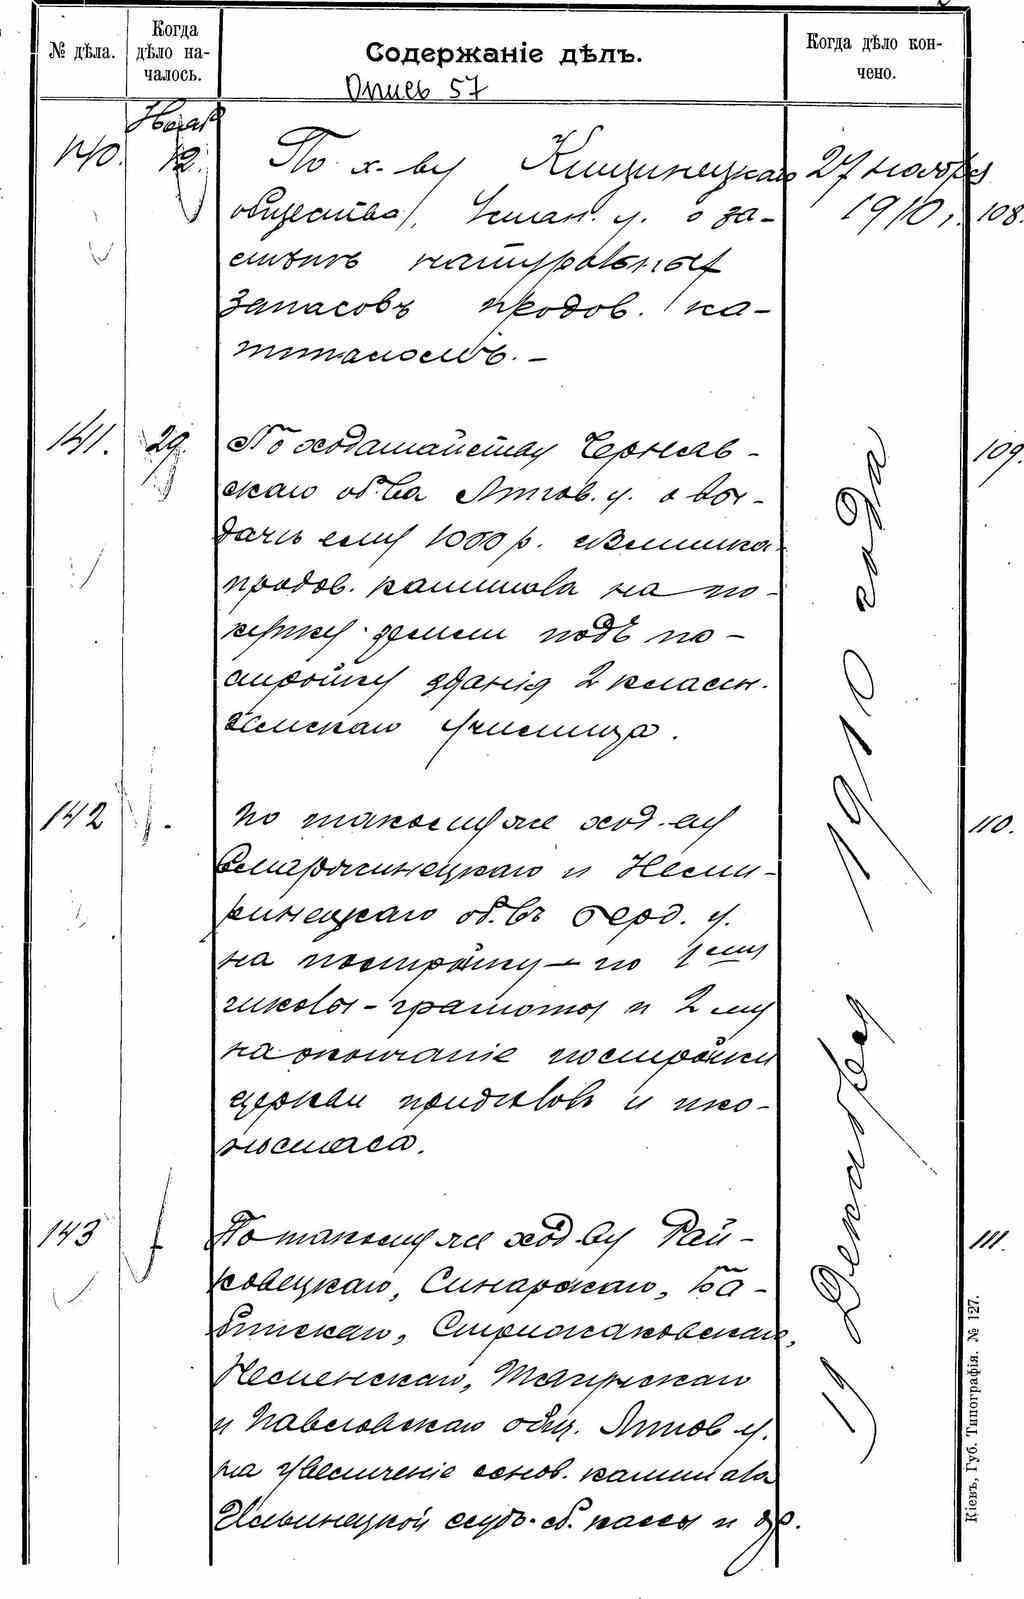 № дѣла.
Когда
дѣло на-
чалось.
Содержаніе дѣлъ.
Опись 57
Когда дѣло кон-
чено.
Нояб
140.
12.
По х-ву Кищинецкаго
общества, Уман. у. о за-
смѣнѣ натуральных
запасовъ продов. ка-
питаломъ. –
27 ноября
1910 г.
108.
141.
29.
По ходатайству Черняв-
скаго об-ва Липов. у. о вы-
дачѣ ему 1000 р. излишка
продов. капитала на по-
купку земли подъ по-
стройку зданія 2 классн.
сельскаго училища.
109.
142
По такому же ход-ву
и Неми-
ринецкаго об-въ берд. у.
на постройку – по 1ому
школы-грамоты и 2му
на окончаніе постройки
церкви придѣловъ и ико-
ностаса.
110.
143
По такому же ход-ву Рай-
ковецкаго, Синарскаго, Ба-
битскаго, Стрижаковскаго,
Неменскаго, Тягунскаго
и Павловскаго общ. Липов у.
на увеличеніе основ. капитала
Ильинецкой ссудо-сб. кассы и др.
111.
19 Декабря 1910 года
Кіевъ, Губ. Типографія. № 127.